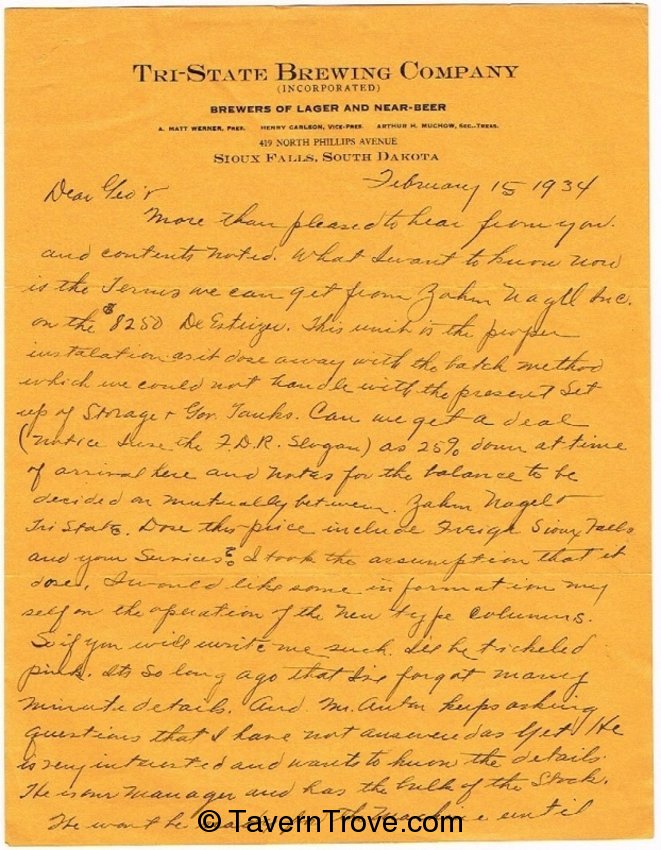 TRI-STATE BREWING COMPANY
(INCORPORATED)
BREWERS OF LAGER AND NEAR-BEER
A. MATT WERNER, PRES. HENRY CARLSON, VICE-PRES. ARTHUR H. MUCHOW, SEC.-TREAS.
419 NORTH PHILLIPS AVENUE
SIOUX FALLS, SOUTH DAKOTA
February 15 1934
Dear Geo'r
More than pleased to hear from you.
and contents noted. What I want to know now
is the Terms we can get from Zahm Nagel Inc.
on the $8250 De Estrizer. This unit is the proper
instalation as it dose away with the batch method
which we could not handle with the present Set
up of Storage + Gov. Tanks. Can we get a deal
(notice I use the F.D.R. Slogan) as 25% down at time
of arrival here and notes for the balance to be
decided on mutually between Zahm Nagel +
Tri State. Dose this price include Freigh Sioux Falls
and your Services? I took the assumption that it
dose. I would like some information my
self on the operation of the new type Columns.
So if you will write me such. I'll be tickeled
pink. Its So long ago that I've forgot many
minute details. And Mr. Anton keeps asking
questions that I have not answered as yet. He
is very interested and wants to know the details.
He is our manager and has the bulk of the Stock.
He wont be until
© TavernTrove.com